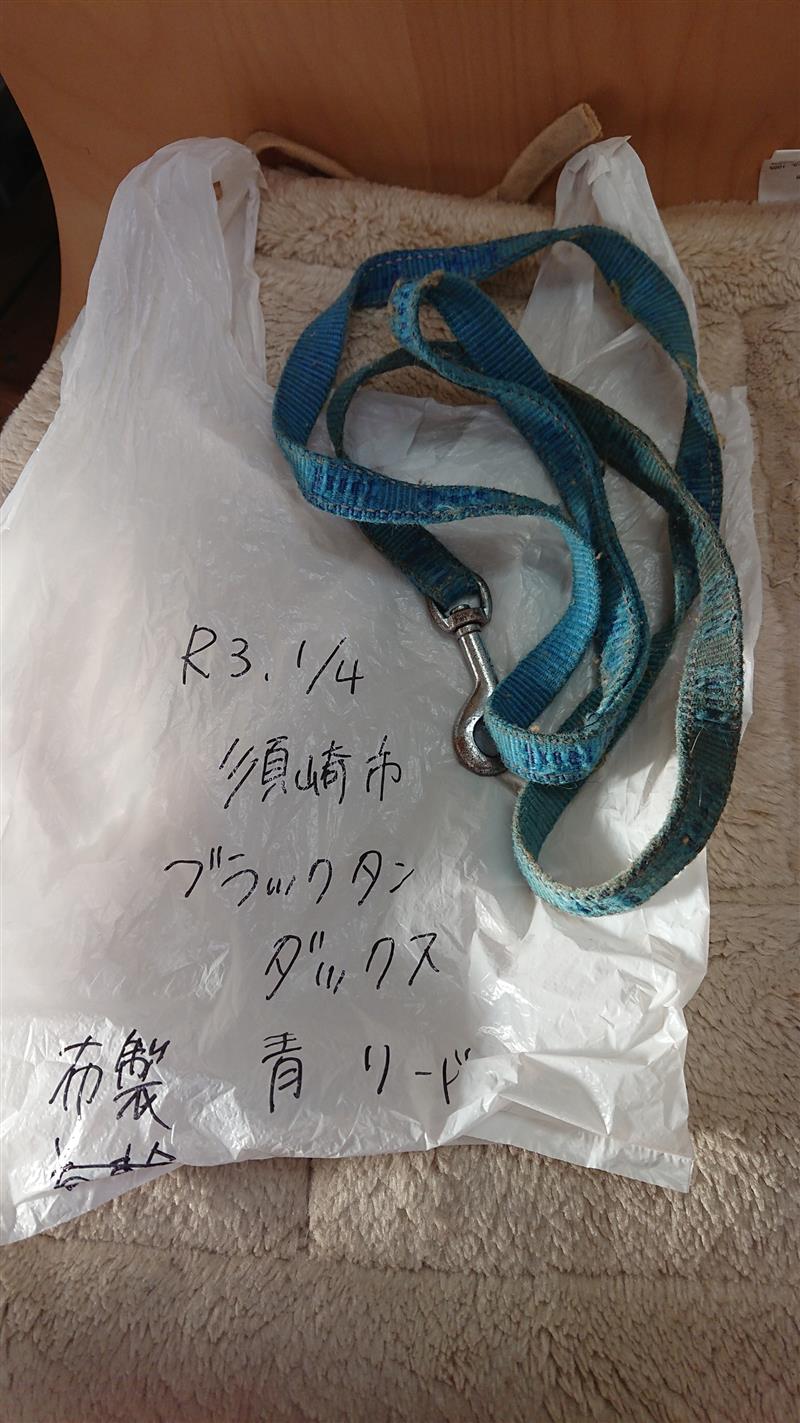 R3.1/4
須崎市
ブラックタン
ダックス
布製 青 リード